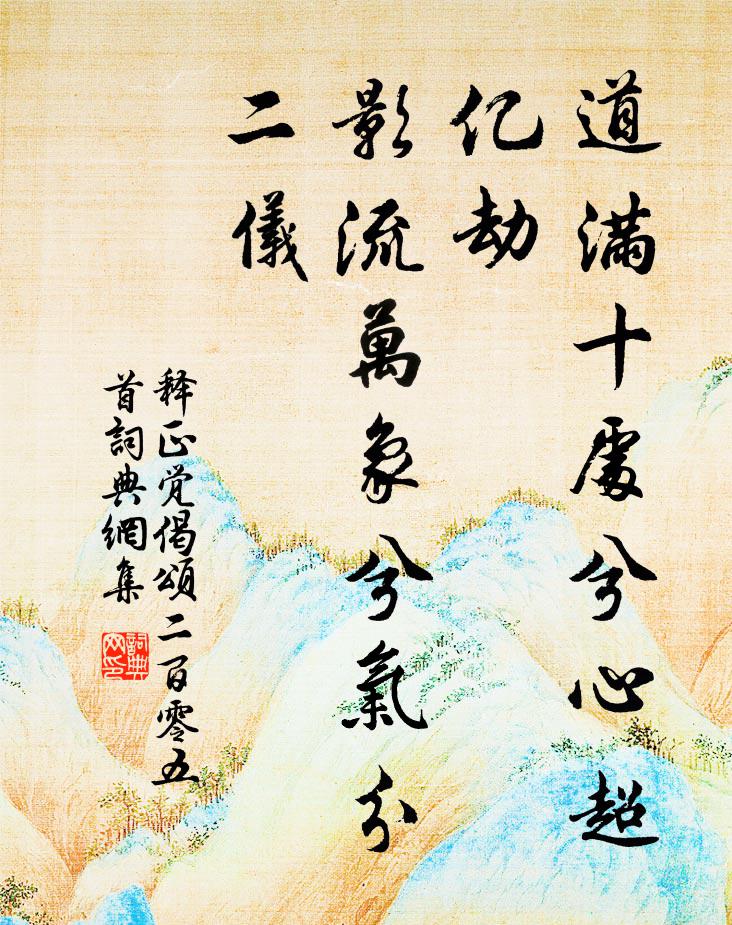 道滿十處兮心超
亿劫
影流萬象兮氣分
二儀
释正觉偈頌二百零五
首詞典網集
詞典網印